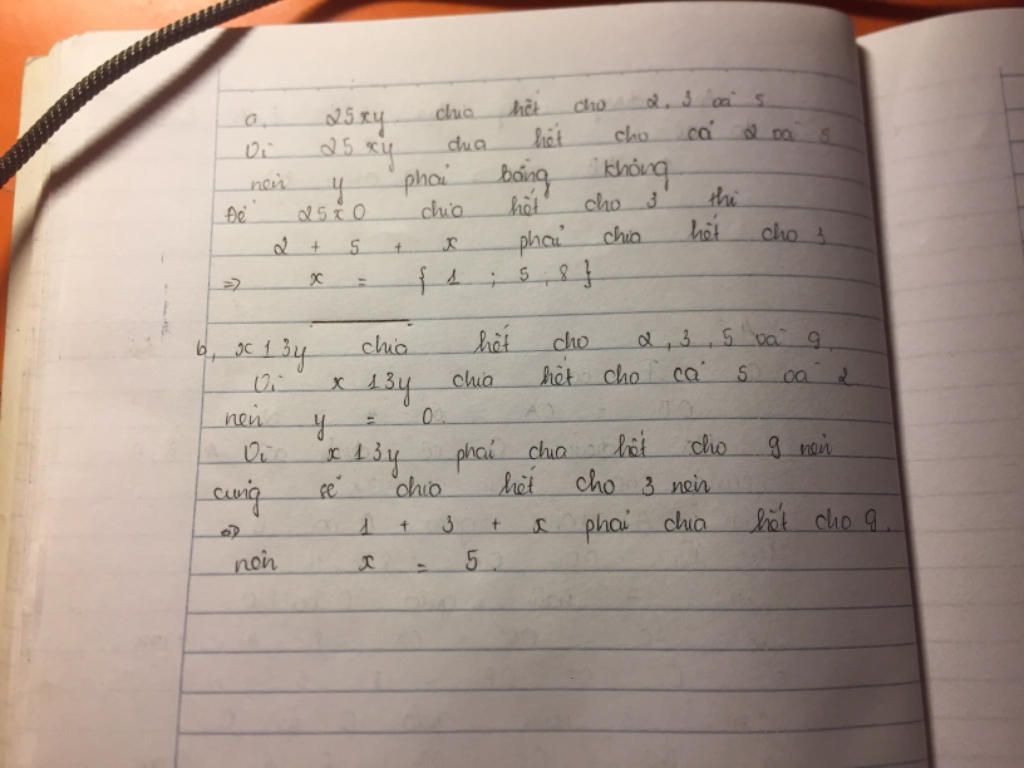 a, 25xy chia hết cho 2, 3 và 5
Vì 25xy chia hết cho cả 2 và 5
nên y phải bằng không
Để 25x0 chia hết cho 3 thì
2 + 5 + x phải chia hết cho 3
=> x = { 1 ; 5, 8 }
b, x13y chia hết cho 2, 3, 5 và 9.
Vì x13y chia hết cho cả 5 và 2
nên y = 0.
Vì x13y phải chia hết cho 9 nên
cũng sẽ chia hết cho 3 nên
=> 1 + 3 + x phải chia hết cho 9.
nên x = 5.